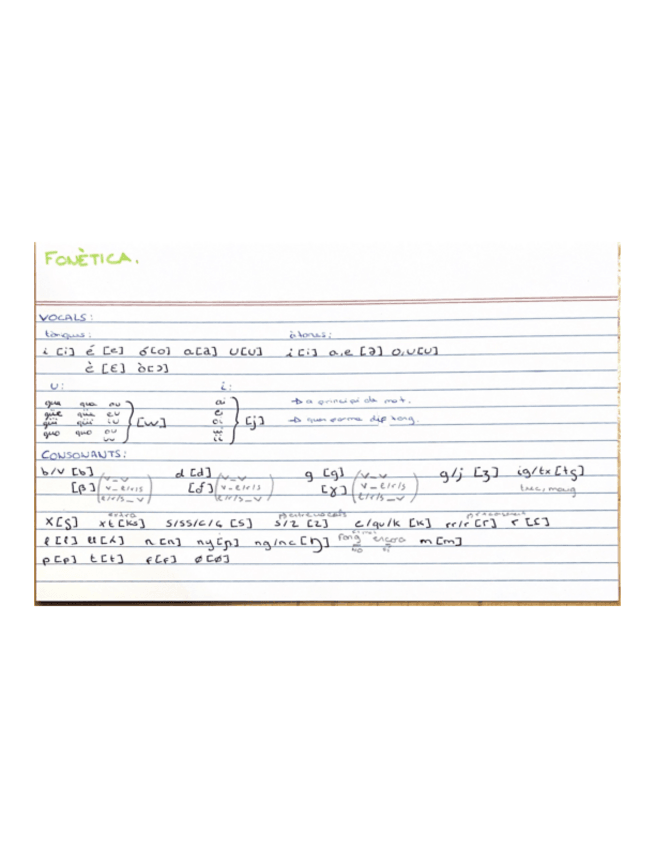 FONÈTICA.
VOCALS:
tòniques: àtones:
i [i] é [e] ó [o] a [a] u [u] i [i] a,e [ə] o,u [u]
è [ɛ] ò [ɔ]
u: i:
gua qua au ai → a principi de mot.
güe qüe eu ei → quan forma diftong.
güi qüi iu [w] oi [j]
guo quo ou ui
uu ii
CONSONANTS:
b/v [b] d [d] g [g] g/j [ʒ] ig/tx [tʃ]
[β] (v_v [ð] (v_v [ɣ] (v_v
v_l/r/s v_l/r/s v_l/r/s
l/r/s_v) l/r/s_v) l/r/s_v)
x [ʃ] xt [ks] s/ss/c/ç [s] s/z [z] c/qu/k [k] rr/r [r] r [ɾ]
l [l] ll [ʎ] n [n] ny [ɲ] ng/nc [ŋ] fang encara m [m]
no sí
p [p] t [t] f [f] ø [ø]